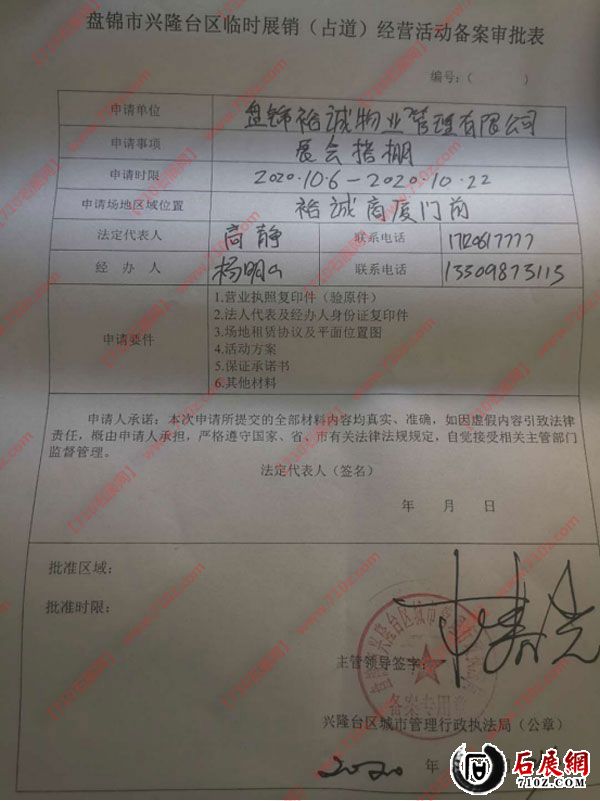 盘锦市兴隆台区临时展销（占道）经营活动备案审批表
编号：（ ）
申请单位 盘锦裕诚物业管理有限公司
申请事项 展会搭棚
申请时限 2020.10.6－2020.10.22
申请场地区域位置 裕诚商厦门前
法定代表人 高静 联系电话
经办人 杨明 联系电话 13309873115
申请要件
1.营业执照复印件（验原件）
2.法人代表及经办人身份证复印件
3.场地租赁协议及平面位置图
4.活动方案
5.保证承诺书
6.其他材料
申请人承诺：本次申请所提交的全部材料内容均真实、准确，如因虚假内容引致法律
责任，概由申请人承担，严格遵守国家、省、市有关法律法规规定，自觉接受相关主管部门
监督管理。
法定代表人（签名）
年 月 日
批准区域：
批准时限：
主管领导签字：
备案专用章
兴隆台区城市管理行政执法局（公章）
2020 年
石展網
710Z.COM
【710石展网】www.710z.com